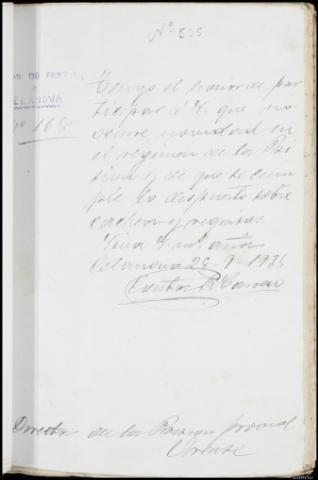 Nº 535
ON DE PARTI
ELANOVA
Nº 168
Tengo el honor de par
ticipar á V. que no
ocurre novedad en
el regimen de la Pri
sion y de que se cum
ple lo dispuesto sobre
cacheos y requisas.
Viva V. ms. años
Celanova 28-9-1935
Director de la Prision Provincial
Orense